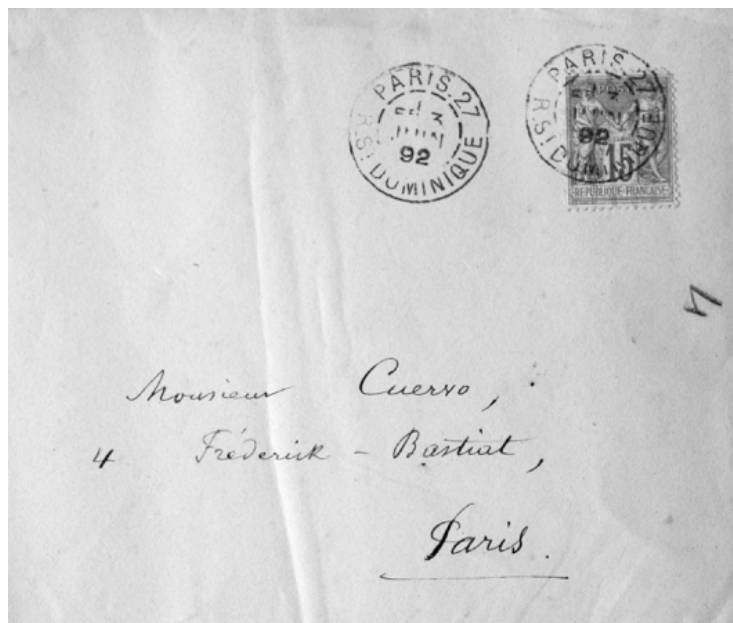 PARIS. 27
JUIN
92
R. ST DOMINIQUE
PARIS. 27
92
R. ST DOMINIQUE
15
REPUBLIQUE FRANÇAISE
Monsieur Cuervo,
4 Fréderick - Bastiat,
Paris.